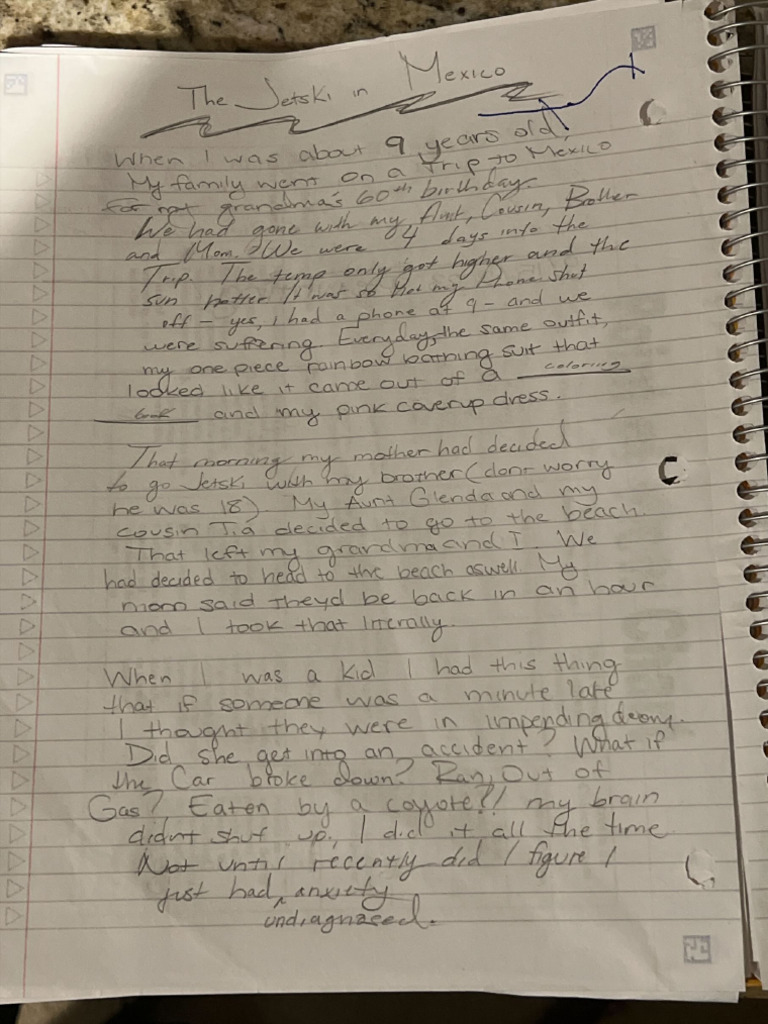 The Jetski in Mexico
When I was about 9 years old,
My family went on a Trip to Mexico
for my grandma's 60th birthday.
We had gone with my Aunt, Cousin, Brother
and Mom. We were 4 days into the
Trip. The temp only got higher and the
sun hotter It was so Hot my Phone shut
off - yes, I had a phone at 9 - and we
were suffering. Everyday, the same outfit,
my one piece rainbow bathing suit that
looked like it came out of a coloring
book and my pink coverup dress.
That morning my mother had decided
to go Jetski with my brother (dont worry
he was 18) My Aunt Glenda and my
cousin Tia decided to go to the beach.
That left my grandma and I. We
had decided to head to the beach aswell. My
mom said theyd be back in an hour
and I took that literally.
When I was a kid I had this thing
that if someone was a minute late
I thought they were in impending doom.
Did she get into an accident? What if
the Car broke down? Ran Out of
Gas? Eaten by a coyote?! my brain
didnt shut up, I did it all the time
Not until recently did I figure I
just had anxiety
undiagnased.